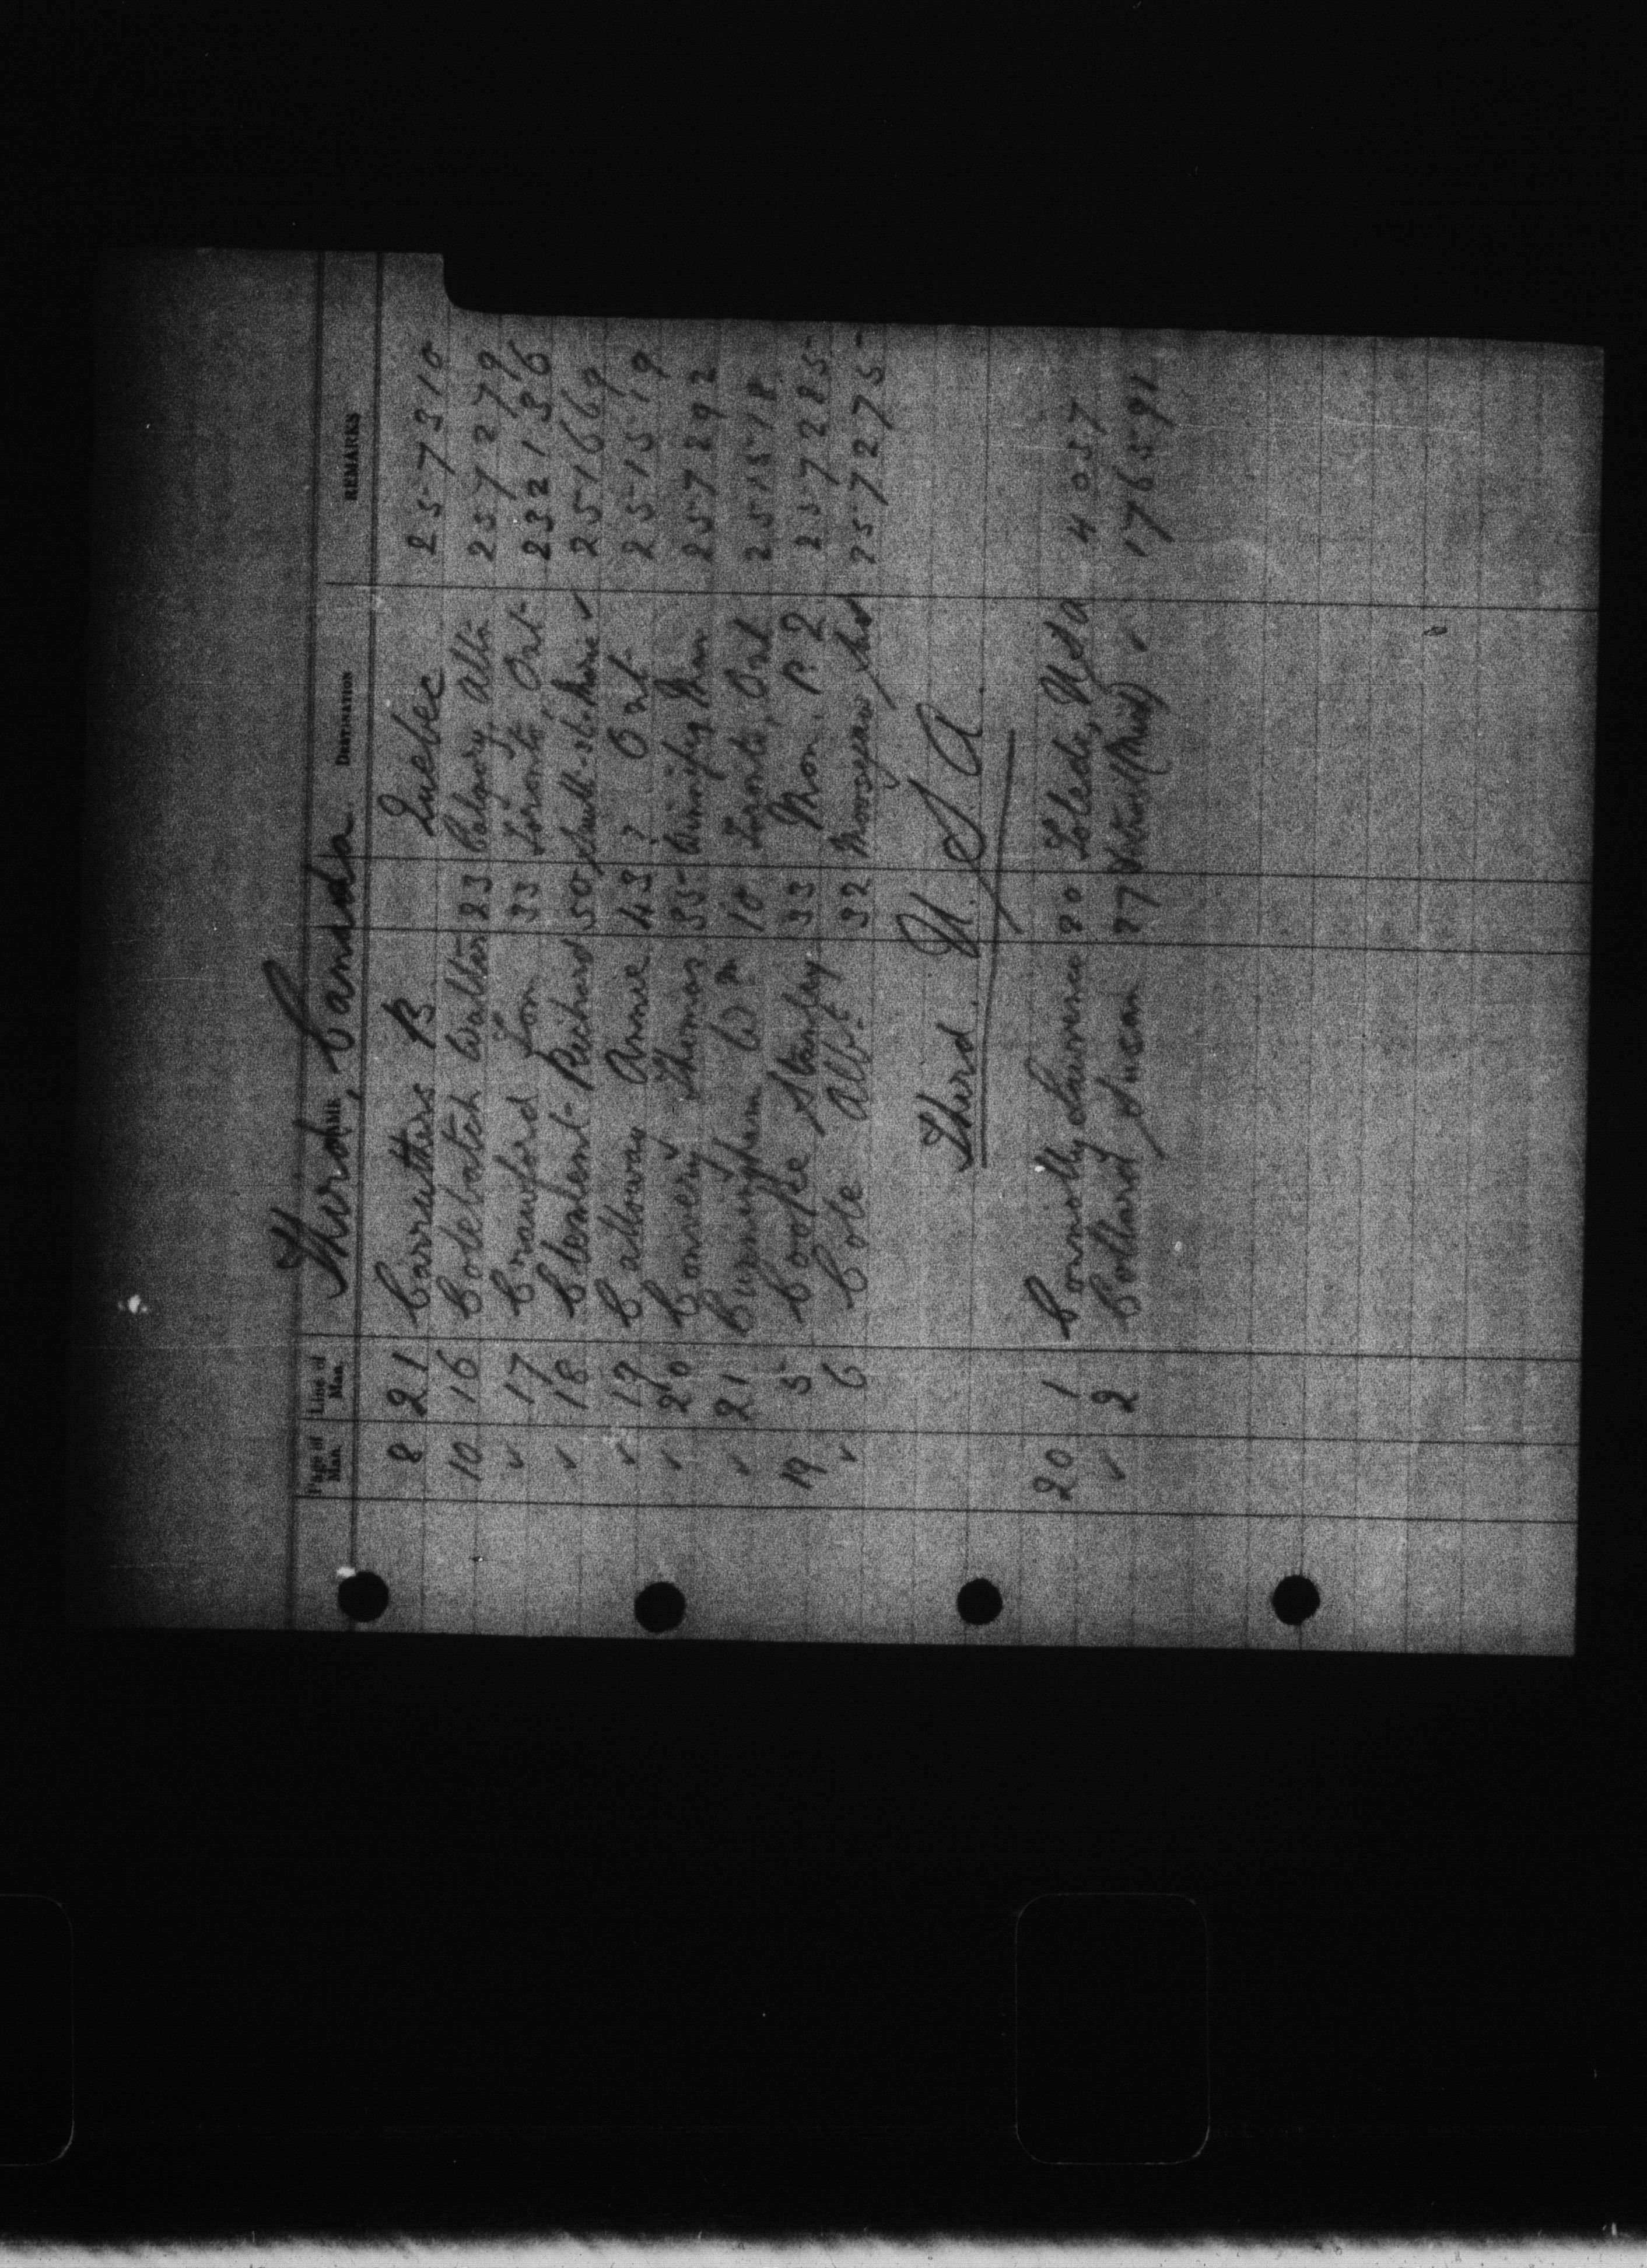 Third, Canada
Page of Man. Line of Man. NAME DESTINATION REMARKS
8 21 Carruthers B Quebec 257310
10 16 Colebatch Walter 23 Calgary Alta 257279
✓ 17 Crawford Tom 33 Toronto, Ont 2321386
✓ 18 Clement Richard 50 Sault-St-Marie ✓ 251669
✓ 19 Calloway Annie 43 ? Ont 251519
✓ 20 Convery Thomas 35 Winnipeg Man 257292
✓ 21 Cunningham Wm 10 Toronto, Ont 251518
19 5 Cooke Stanley 33 Mon. P.2 257285
✓ 6 Cole Albt 32 Moosejaw 257275
Third U.S.A.
20 1 Connolly Lawrence 20 Toledo, USA 4057
✓ 2 Collard Susan 27 Detroit (Mich) ✓ 176591